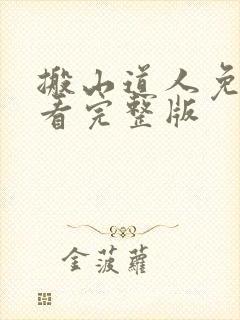 搬山道人免
看完整版
金菠蘿